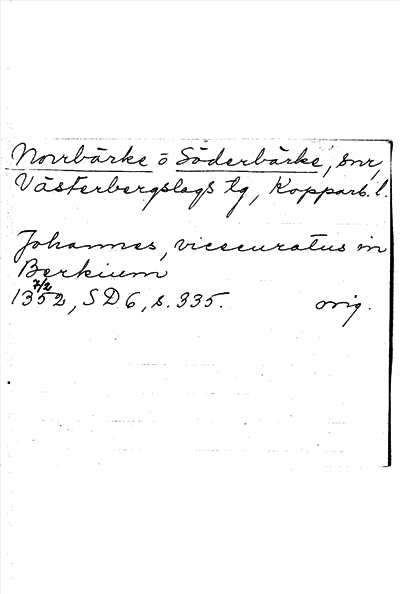 Norrbärke o Söderbärke, snr,
Västerbergslags tg, Kopparb. l.
Johannes, vicecuratus in
Berkium
7/2
1352, SD 6, s. 335. orig.